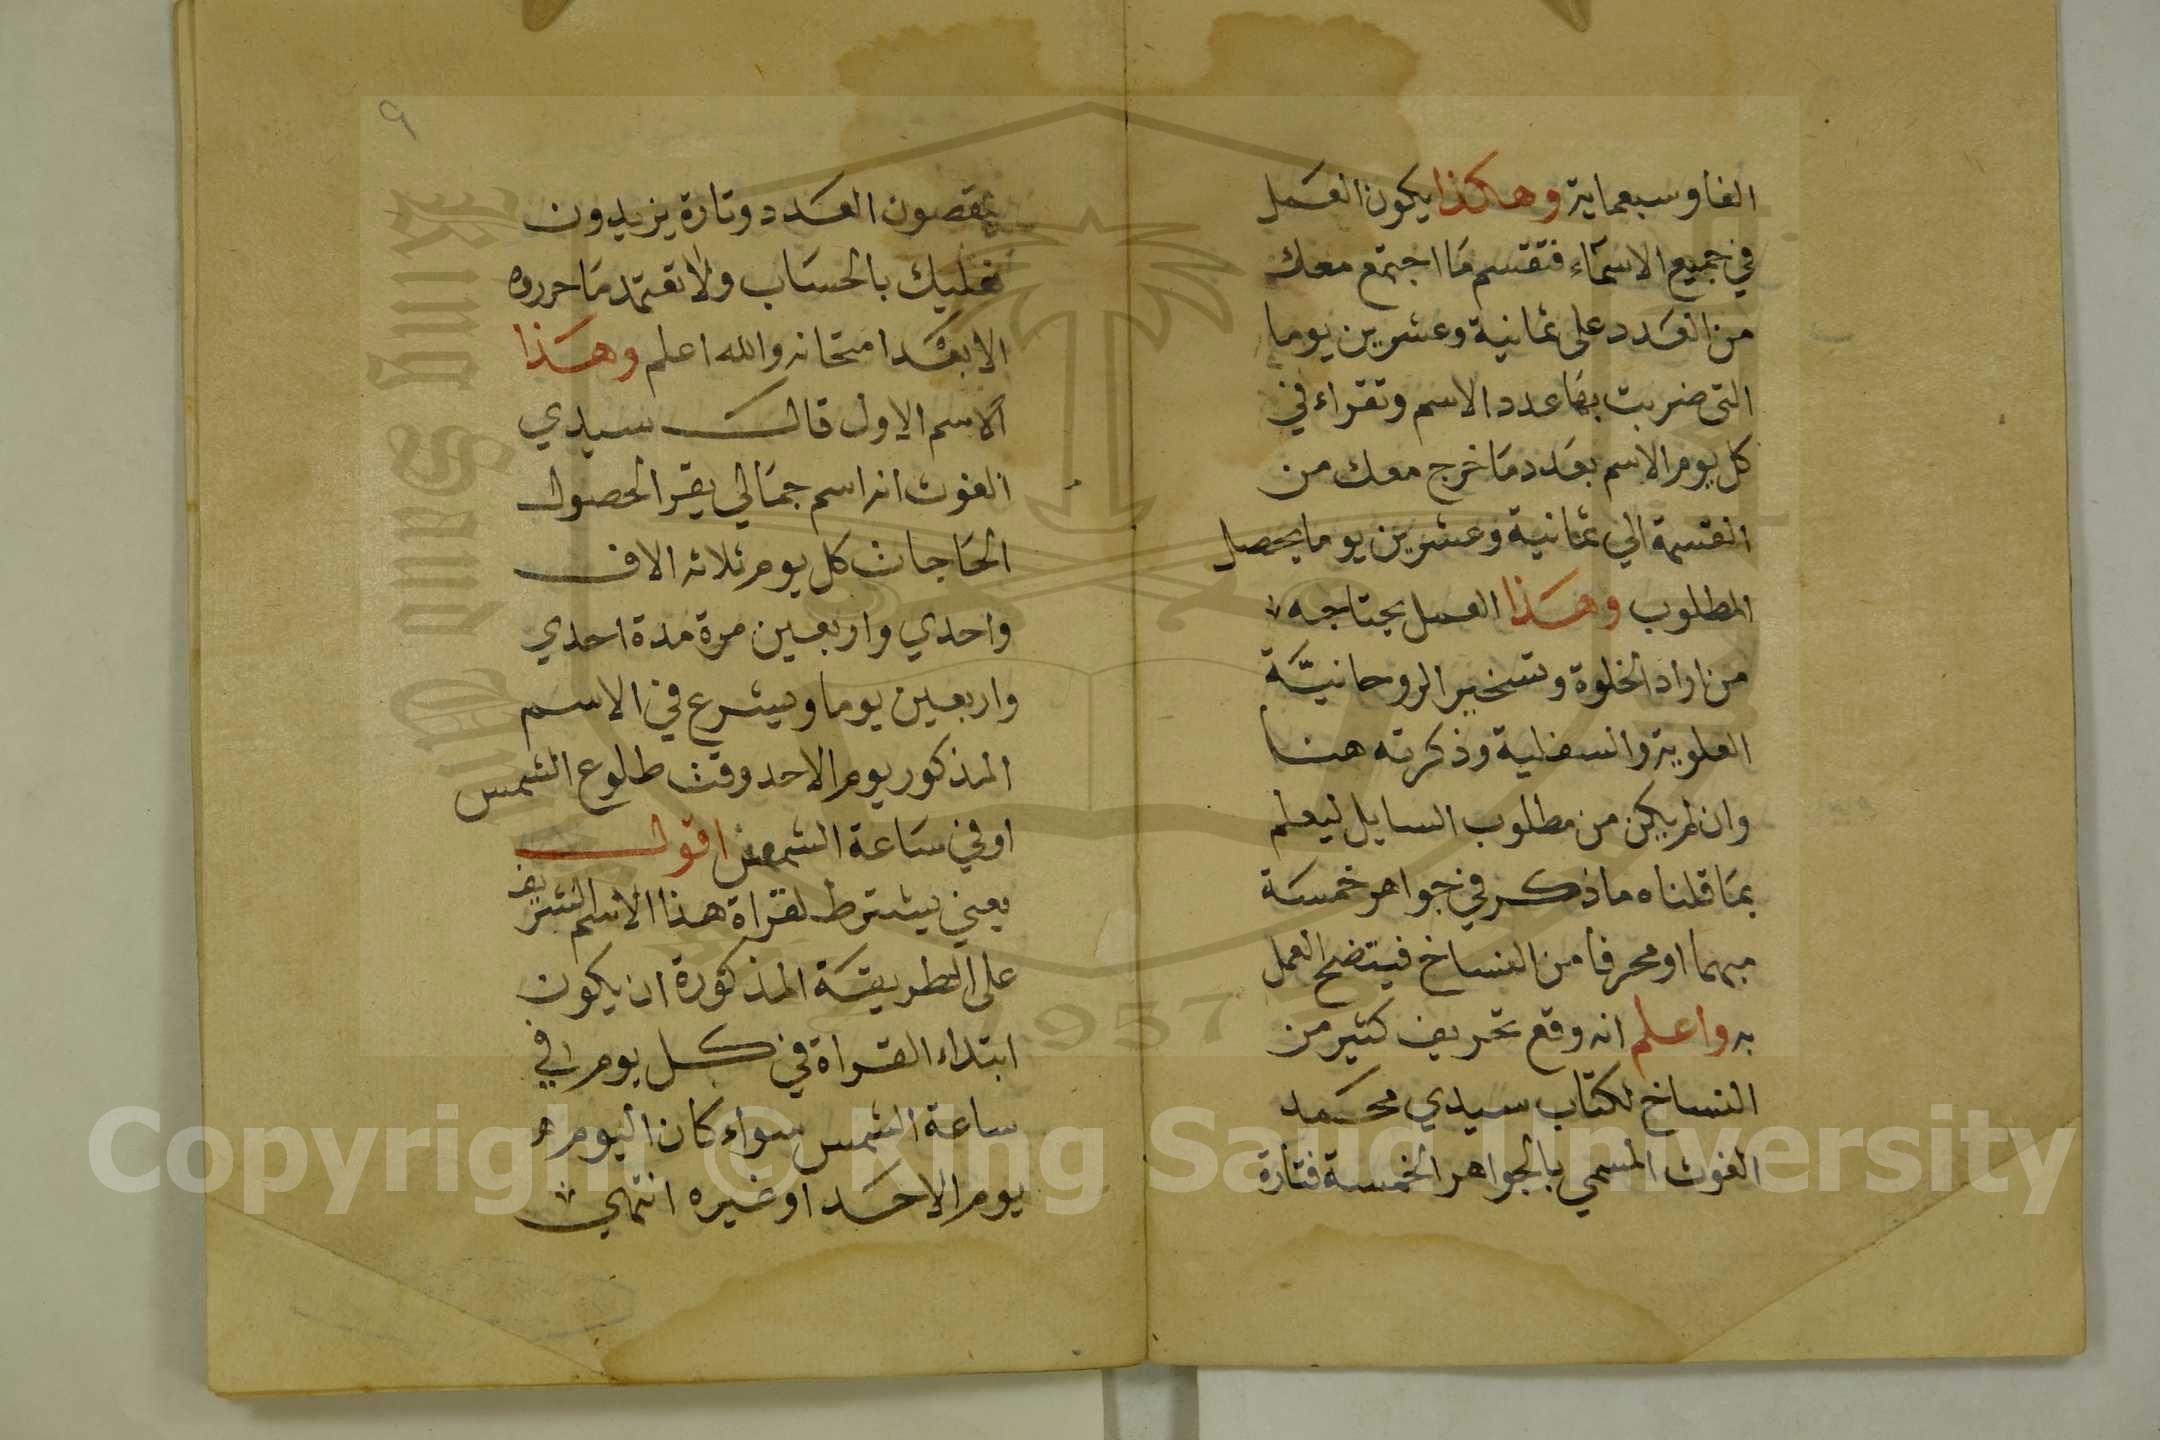 الفا وسبعماية وهاكذا يكون العمل
في جميع الاسماء فتقسم ما اجتمع معك
من العدد على ثمانية وعشرين يوما
التي ضربت بها عدد الاسم وتقراء في
كل يوم الاسم بعدد ما خرج معك من
القسمة الي ثمانية وعشرين يوما يحصل
المطلوب وهذا العمل يحتاجه
من اراد الخلوة وتسخير الروحانية
العلوية والسفلية وذكرته هنا
وان لم يكن من مطلوب السايل ليعلم
بما قلناه ما ذكر في جواهر خمسة
مبهما او محرفا من النساخ فيتضح العمل
به واعلم انه وقع تحريف كثير من
النساخ لكتاب سيدي محمد
الغوث المسمي بالجواهر الخمسة فتارة
٩
ينقصون العدد وتارة يزيدون
فعليك بالحساب ولا تعتمد ما حرروه
الا بعد امتحانه والله اعلم وهذا
الاسم الاول قال سيدي
الغوث انه اسم جمالي يقرا لحصول
الحاجات كل يوم ثلاثه الاف
واحدي واربعين مرة مدة احدي
واربعين يوما ويشرع في الاسم
المذكور يوم الاحد وقت طلوع الشمس
او في ساعة الشمس اقول
يعني يشترط لقراة هذا الاسم الشريف
على الطريقة المذكورة ان يكون
ابتداء القراة في كل يوم في
ساعة الشمس سواء كان اليوم
يوم الاحد او غيره انتهي
Copyright © King Saud University
King Saud University
1957